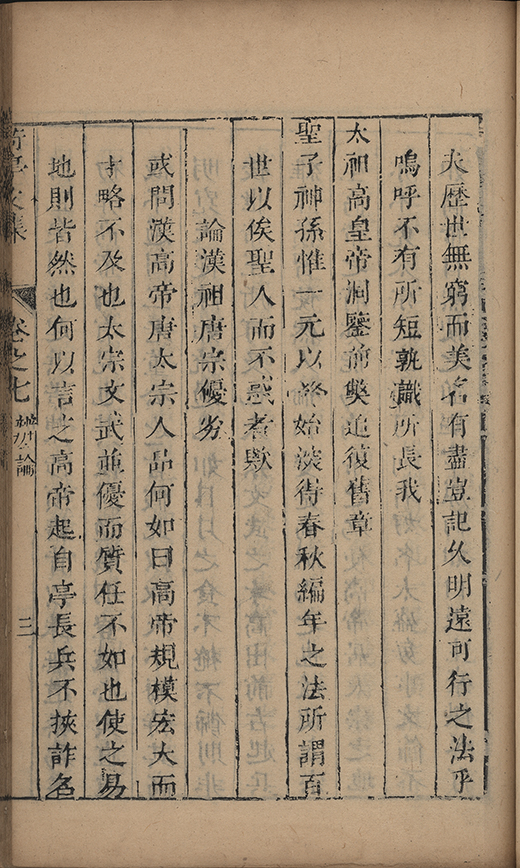 夫歷世無窮而美名有盡豈記久明遠可行之法乎
嗚呼不有所短孰識所長我
太祖高皇帝洞鑒前獘追復舊章
聖子神孫惟一元以終始深得春秋編年之法所謂百
世以俟聖人而不惑者歟
論漢祖唐宗優劣
或問漢高帝唐太宗人品何如曰高帝規模宏大而
才略不及也太宗文武並優而質任不如也使之易
地則皆然也何以言之高帝起自亭長兵不挾詐名
文集
卷之七
論
三